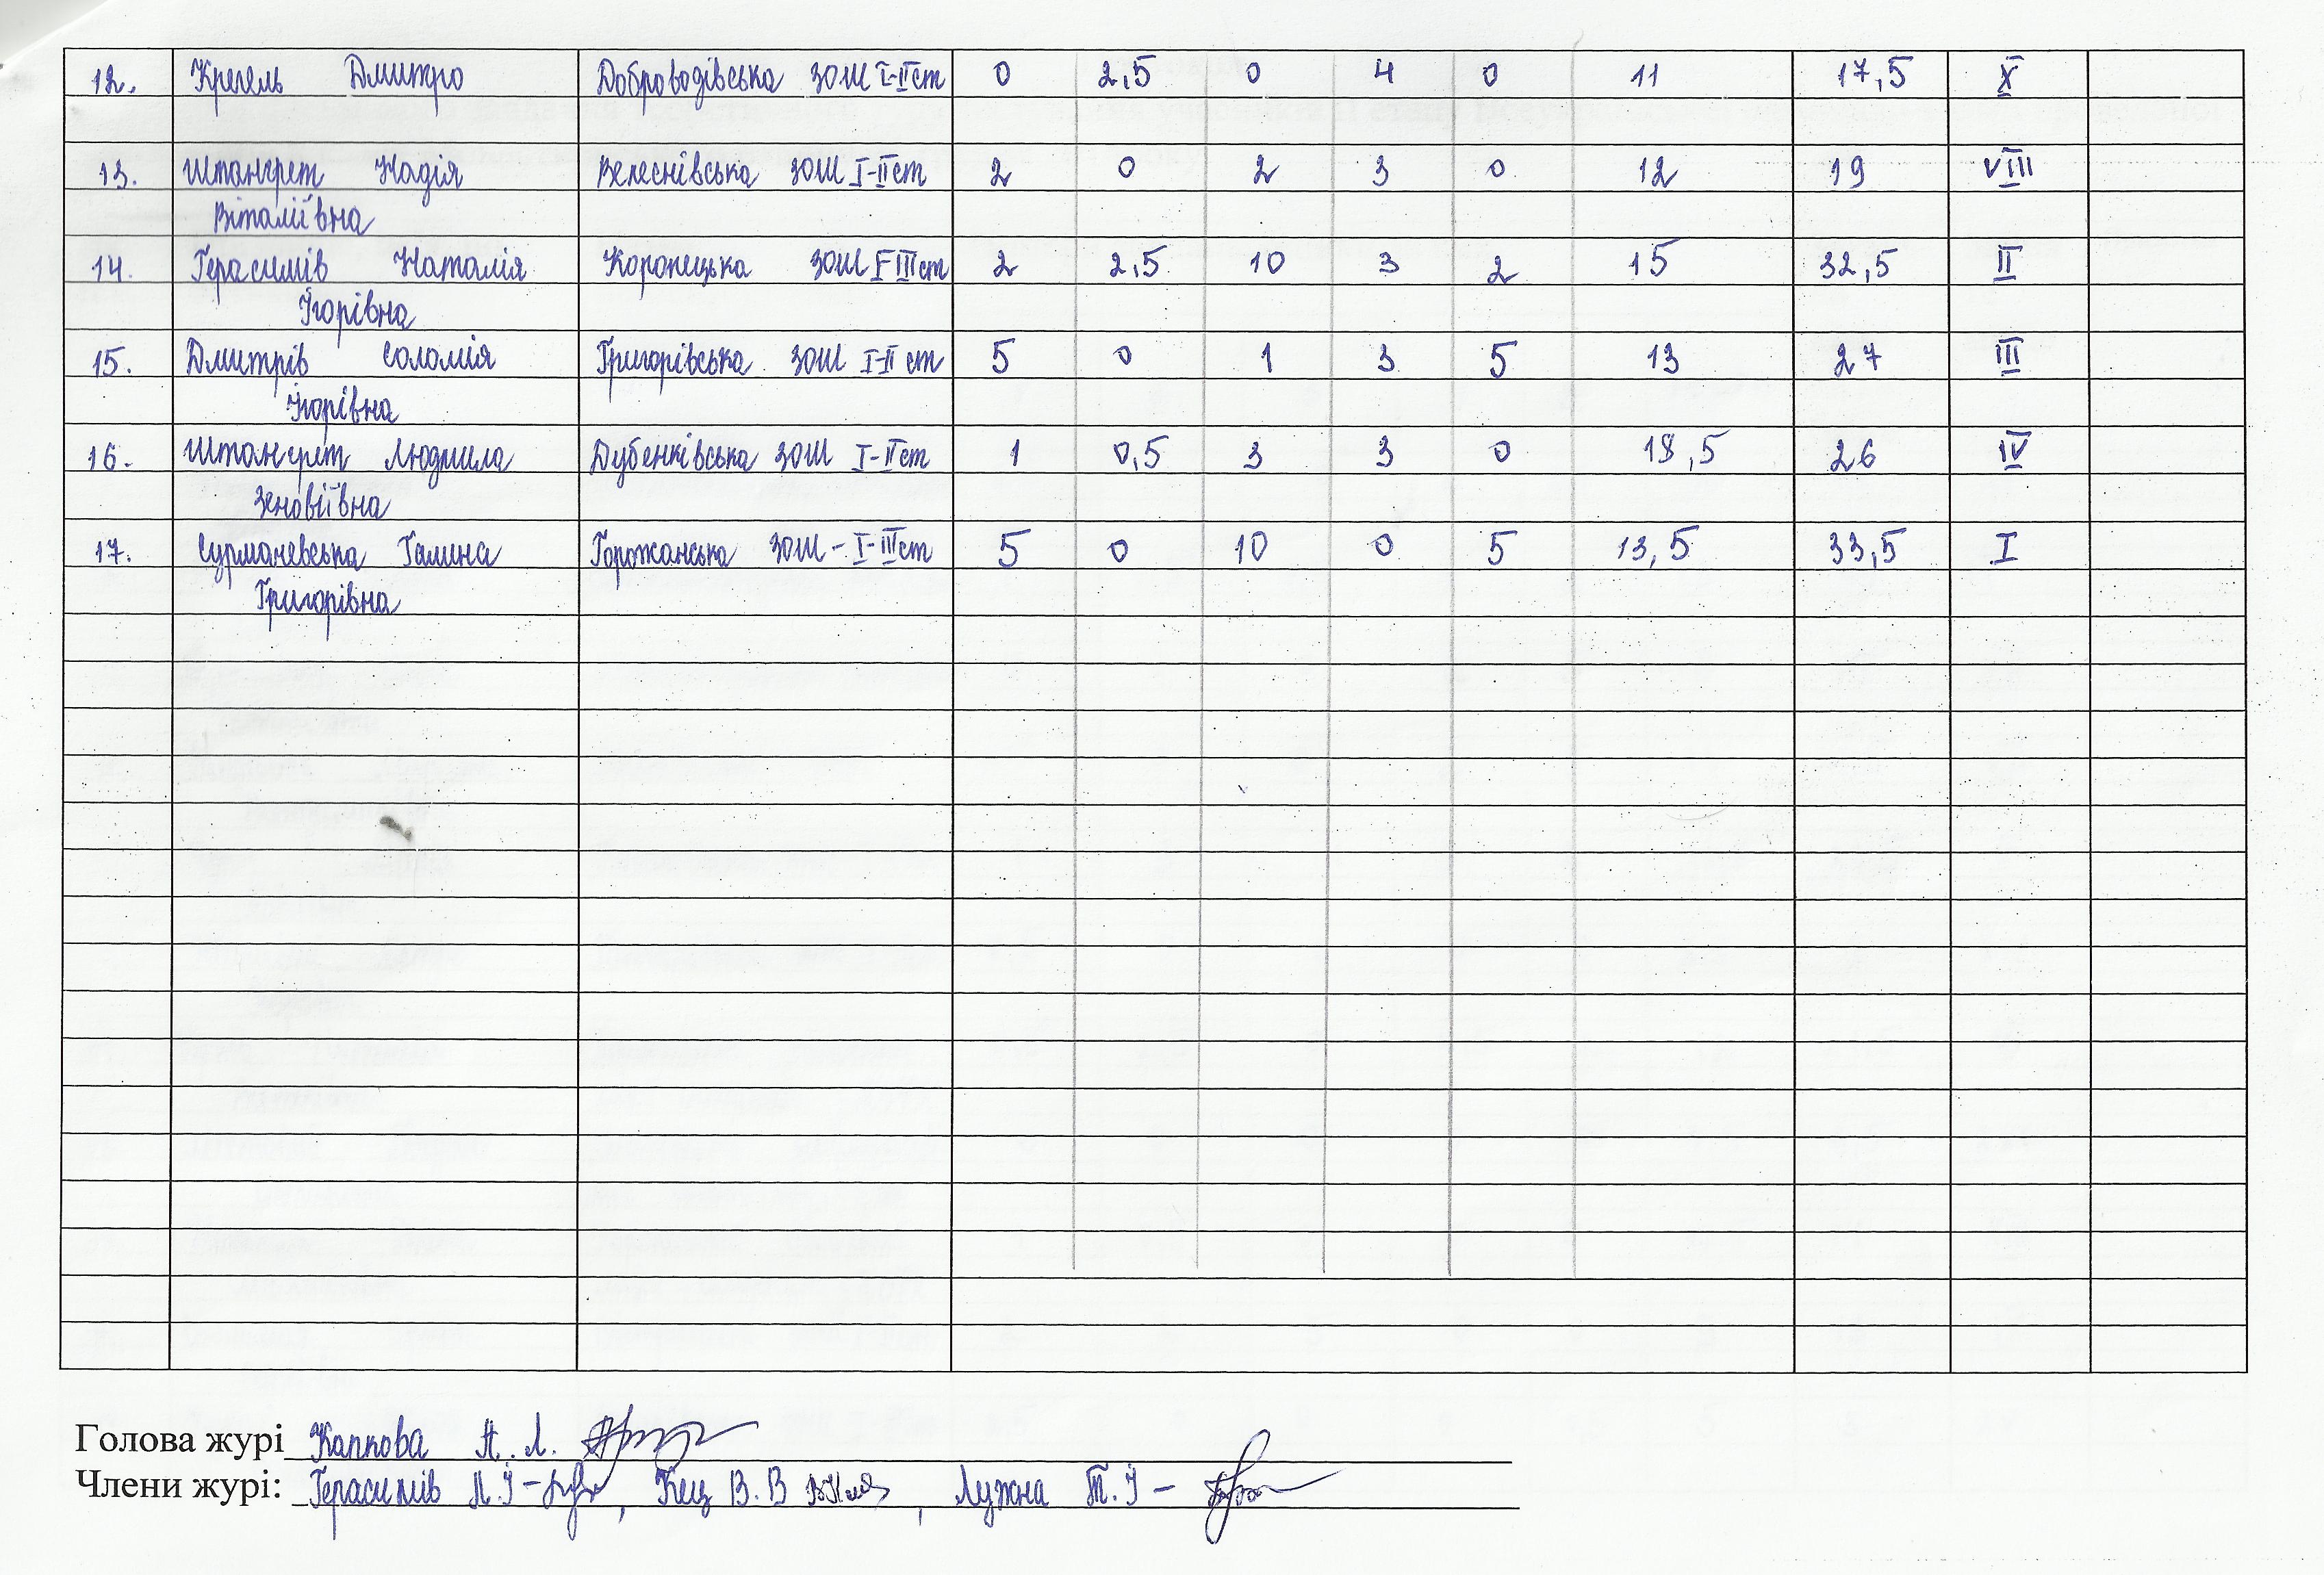 12. Крегель Дмитро Доброводівська ЗОШ І-ІІст 0 2,5 0 4 0 11 17,5 X
13. Штангрет Надія Велеснівська ЗОШ І-ІІст 2 0 2 3 0 12 19 VIII
Віталіївна
14. Герасимів Наталія Коропецька ЗОШ І-ІІІст 2 2,5 10 3 2 15 32,5 II
Ігорівна
15. Дмитрів Соломія Григорівська ЗОШ І-ІІ ст 5 0 1 3 5 13 27 III
Ігорівна
16. Штангрет Людмила Дубенківська ЗОШ І-ІІст 1 0,5 3 3 0 18,5 26 IV
Зеновіївна
17. Сурмачевська Галина Горожанська ЗОШ - І-ІІІст 5 0 10 0 5 13,5 33,5 I
Григорівна
Голова журі Капкова Н. Л.
Члени журі: Герасимів Л.І - , Кец В.В , Лужна Т.І -